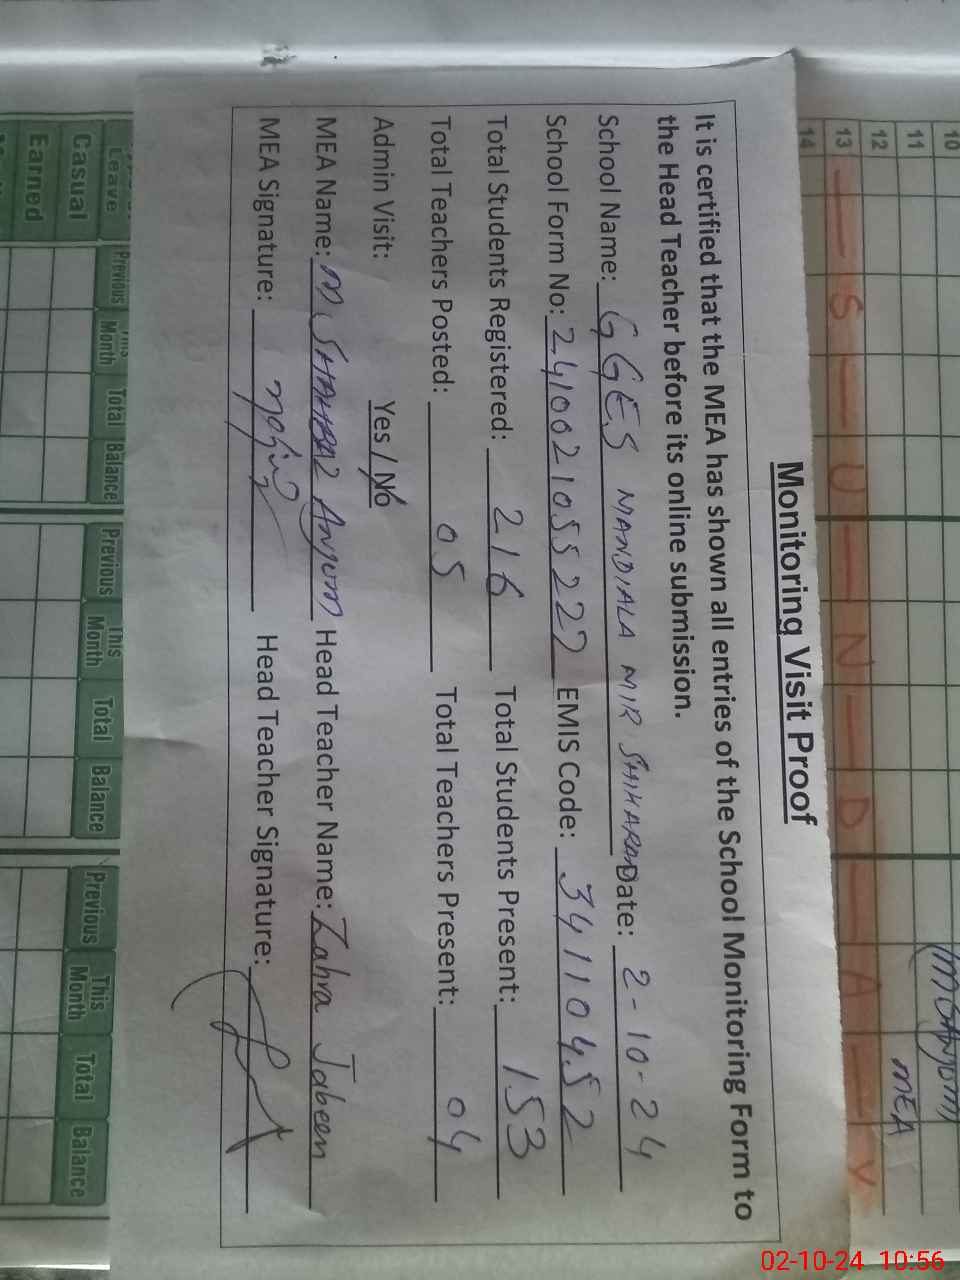 Monitoring Visit Proof
It is certified that the MEA has shown all entries of the School Monitoring Form to
the Head Teacher before its online submission.
School Name: GGES MANDIALA MIR SHIKARAN Date: 2-10-24
School Form No: 2410021055227 EMIS Code: 34110452
Total Students Registered: 216 Total Students Present: 153
Total Teachers Posted: 05 Total Teachers Present: 04
Admin Visit: Yes / No
MEA Name: M SHAHBAZ Anjum Head Teacher Name: Zahra Jabeen
MEA Signature: Head Teacher Signature:
10
11
12
13 S U N D A Y
14
Anjum
MEA
Leave Previous This Month Total Balance Previous This Month Total Balance Previous This Month Total Balance
Casual
Earned
02-10-24 10:56